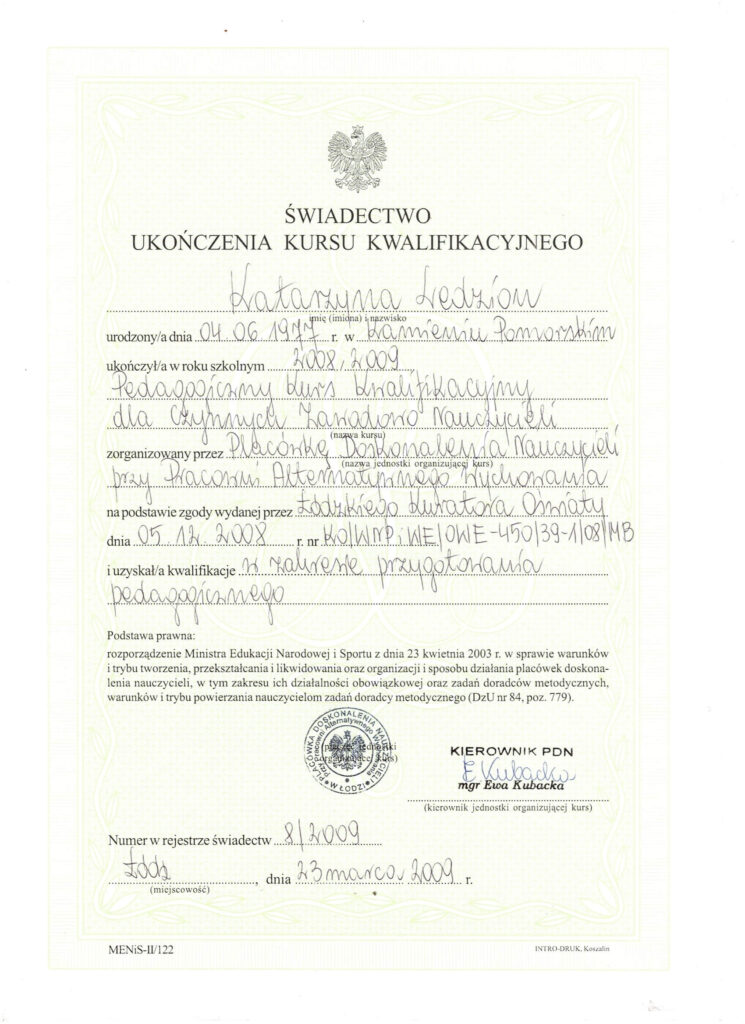 ŚWIADECTWO
UKOŃCZENIA KURSU KWALIFIKACYJNEGO
Katarzyna Ledzion
imię (imiona) i nazwisko
urodzony/a dnia 04.06.1977 r. w Kamieniu Pomorskim
ukończył/a w roku szkolnym 2008/2009
Pedagogiczny Kurs Kwalifikacyjny
dla Czynnych Zawodowo Nauczycieli
(nazwa kursu)
zorganizowany przez Placówkę Doskonalenia Nauczycieli
(nazwa jednostki organizującej kurs)
przy Pracowni Alternatywnego Wychowania
na podstawie zgody wydanej przez Łódzkiego Kuratora Oświaty
dnia 05.12.2008 r. nr KO/WNPiWE/OWE-450/39-1/08/MB
i uzyskał/a kwalifikacje w zakresie przygotowania
pedagogicznego
Podstawa prawna:
rozporządzenie Ministra Edukacji Narodowej i Sportu z dnia 23 kwietnia 2003 r. w sprawie warunków
i trybu tworzenia, przekształcania i likwidowania oraz organizacji i sposobu działania placówek doskona-
lenia nauczycieli, w tym zakresu ich działalności obowiązkowej oraz zadań doradców metodycznych,
warunków i trybu powierzania nauczycielom zadań doradcy metodycznego (DzU nr 84, poz. 779).
PLACÓWKA DOSKONALENIA NAUCZYCIELI
przy Pracowni Alternatywnego Wychowania
W ŁODZI
(pieczęć jednostki
organizującej kurs)
KIEROWNIK PDN
E Kubacka
mgr Ewa Kubacka
(kierownik jednostki organizującej kurs)
Numer w rejestrze świadectw 8/2009
Łódź, dnia 23 marca 2009 r.
(miejscowość)
MENiS-II/122
INTRO-DRUK, Koszalin